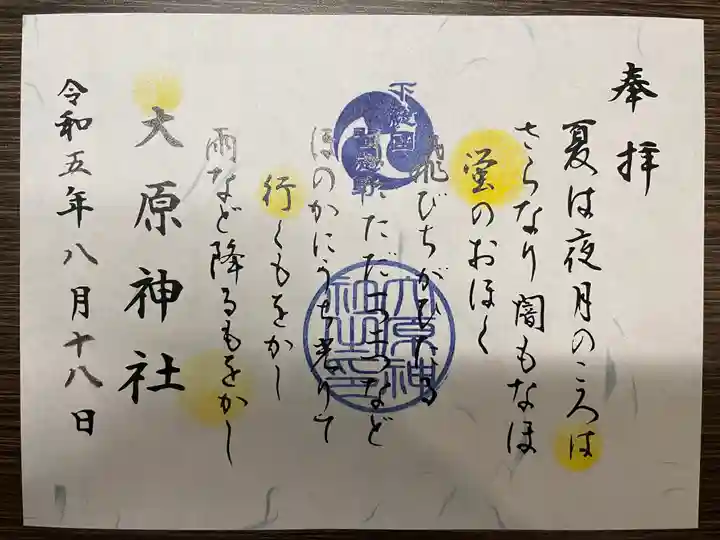 奉拝
夏は夜月のころは
さらなり闇もなほ
蛍のおほく
飛びちがひたる
ただ一つ二つなど
ほのかにうち光りて
行くもをかし
雨など降るもをかし
下総国
大原神社
令和五年八月十八日